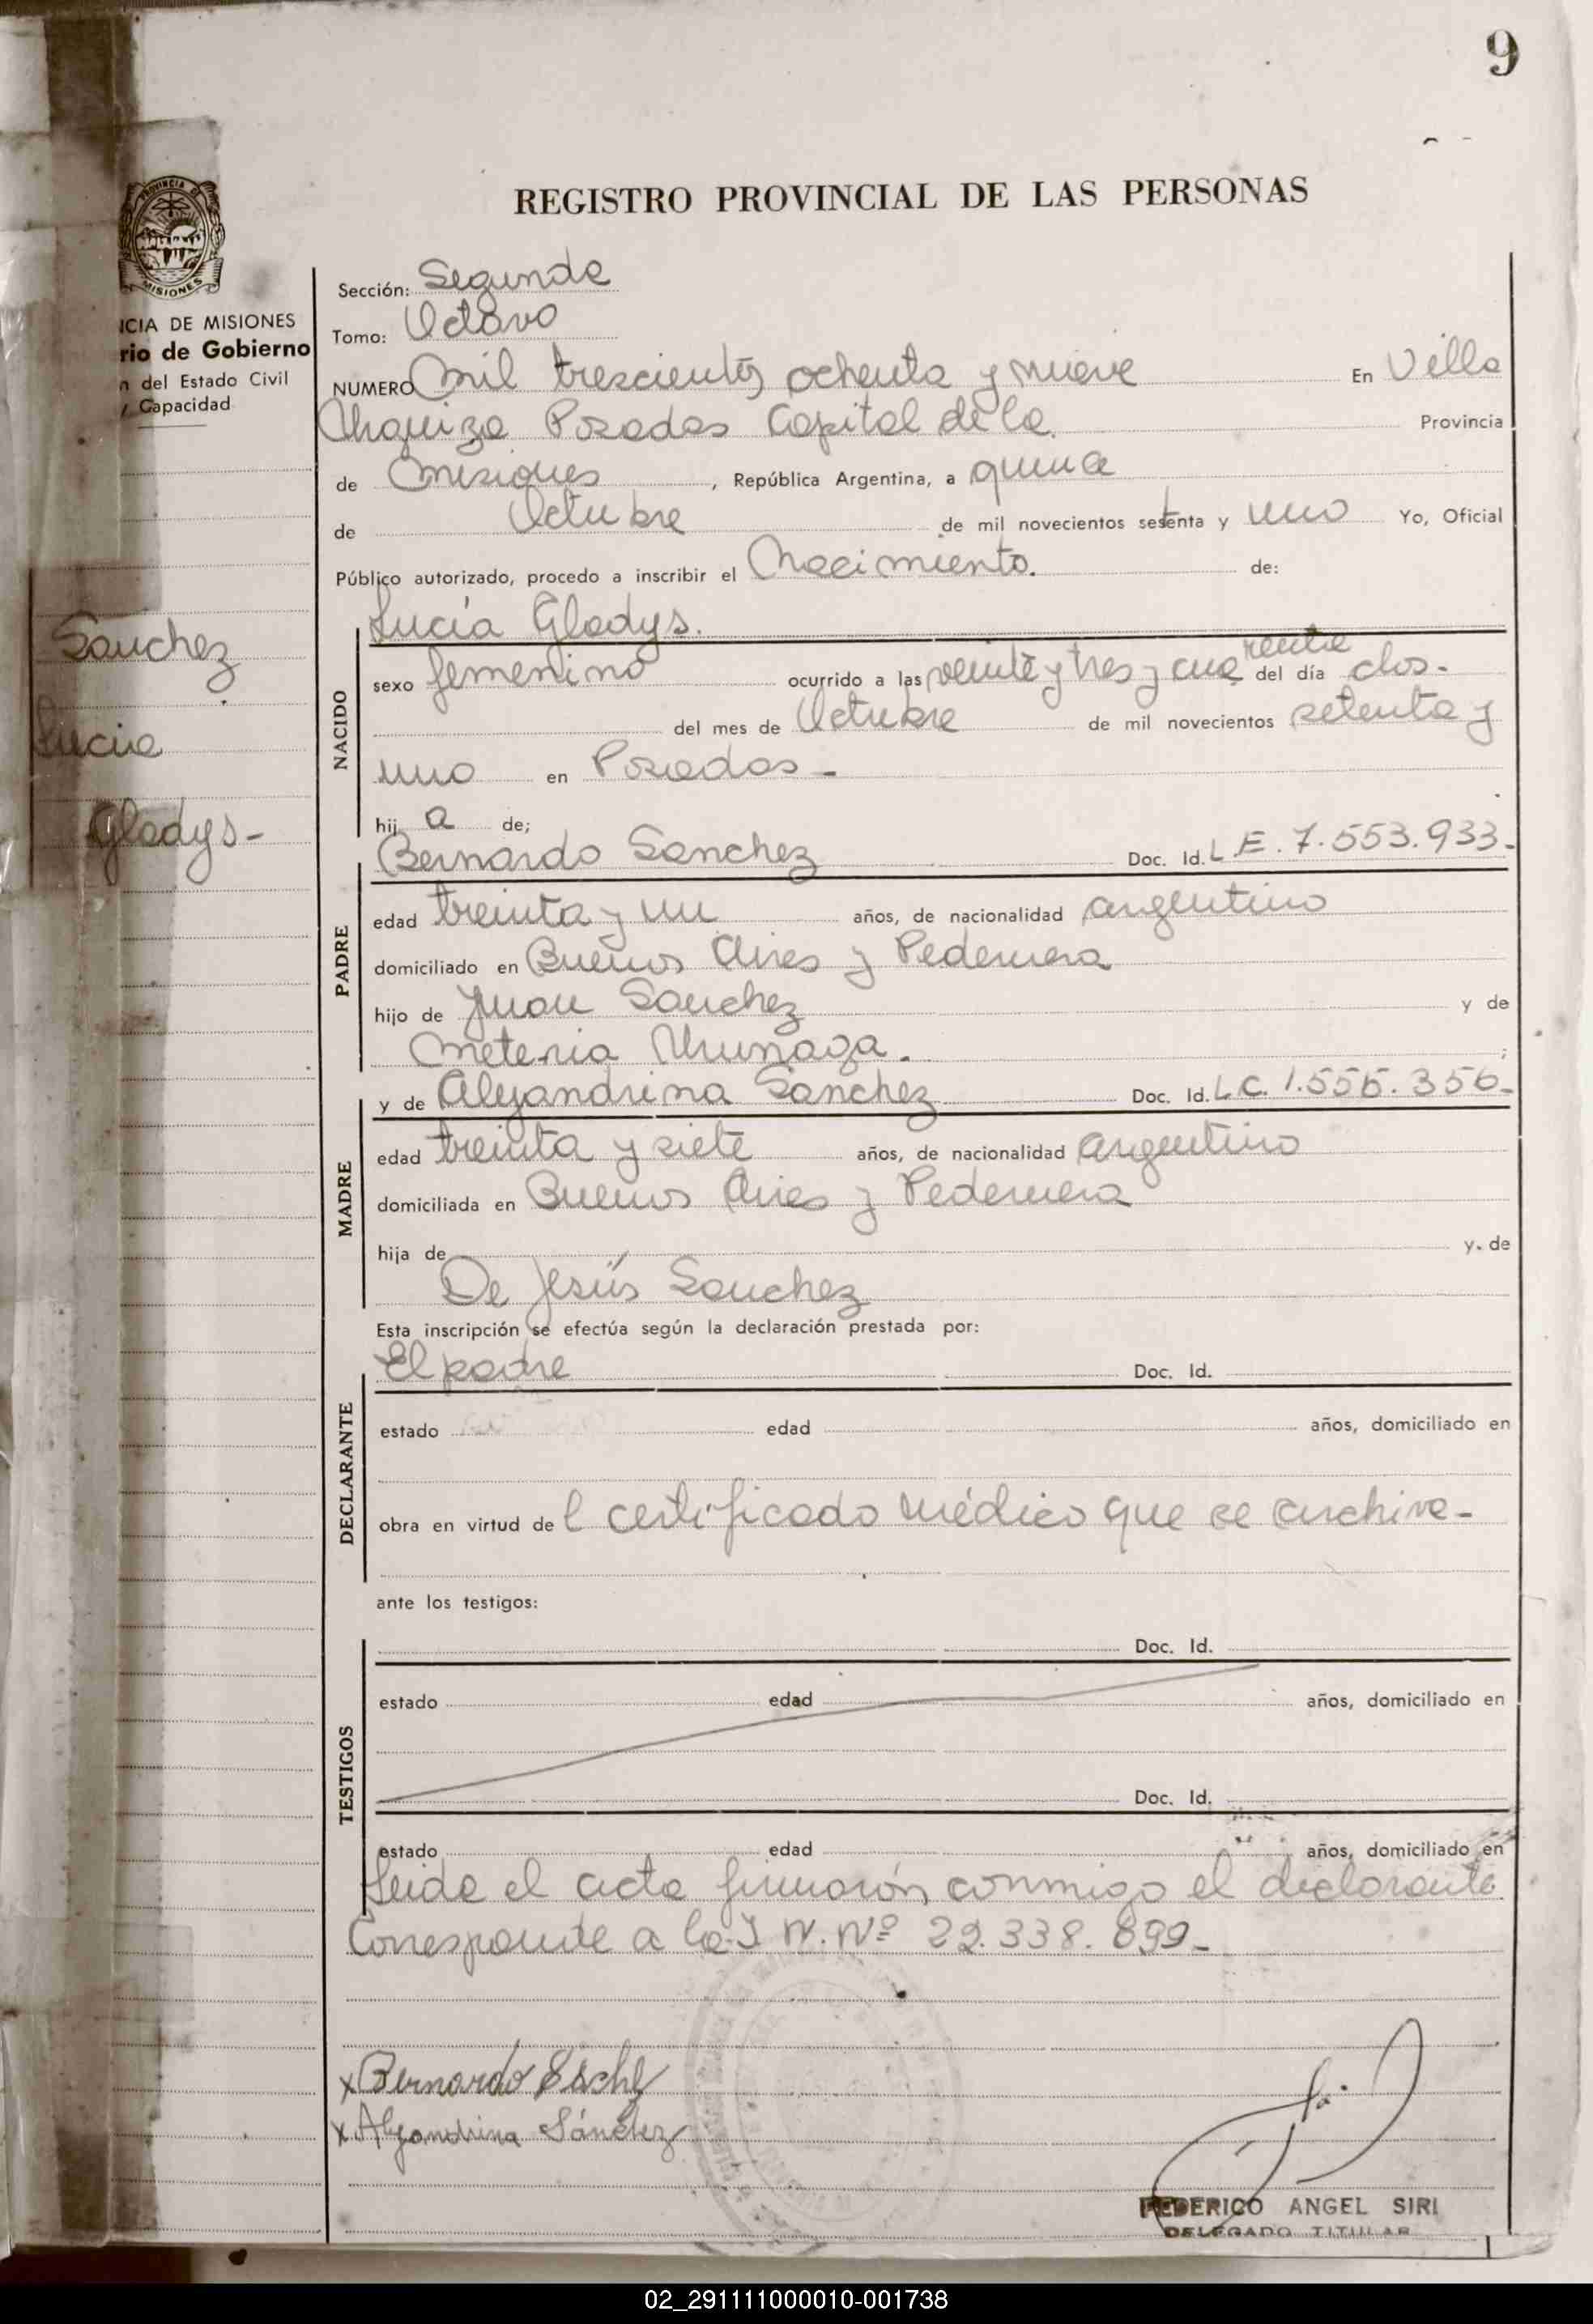 9
REGISTRO PROVINCIAL DE LAS PERSONAS
PROVINCIA DE
MISIONES
NCIA DE MISIONES
rio de Gobierno
n del Estado Civil
y Capacidad
Sanchez
Lucia
Gladys-
Sección: Segunda
Tomo: Octavo
NUMERO Mil trescientos ochenta y nueve En Villa
Urquiza Posadas Capital de la Provincia
de Misiones, República Argentina, a quince
de Octubre de mil novecientos setenta y uno Yo, Oficial
Público autorizado, procedo a inscribir el Nacimiento. de:
Lucía Gladys.
NACIDO
sexo femenino ocurrido a las veinte y tres y cuarenta del día dos-
del mes de Octubre de mil novecientos setenta y
uno en Posadas-
hij a de;
Bernardo Sanchez Doc. Id. L E. 7.553.933-
PADRE
edad treinta y un años, de nacionalidad argentino
domiciliado en Buenos Aires y Pedernera
hijo de Juan Sanchez y de
;
y de Alejandrina Sanchez Doc. Id. L C. 1.555.356-
MADRE
edad treinta y siete años, de nacionalidad argentino
domiciliada en Buenos Aires y Pedernera
hija de y. de
De Jesús Sanchez
Esta inscripción se efectúa según la declaración prestada por:
El padre Doc. Id.
DECLARANTE
estado edad años, domiciliado en
obra en virtud de l certificado médico que se archiva-
ante los testigos:
Doc. Id.
TESTIGOS
estado edad años, domiciliado en
Doc. Id.
estado edad años, domiciliado en
Leida el acta firmarón conmigo el declarante
Corresponde a la I. N. Nº 22.338.899-
x Bernardo
x Alejandrina Sánchez
FEDERICO ANGEL SIRI
DELEGADO TITULAR
02_291111000010-001738